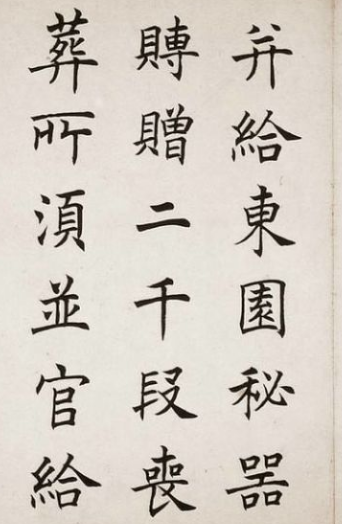 并給東園秘器
賻贈二千段喪
葬所須並官給